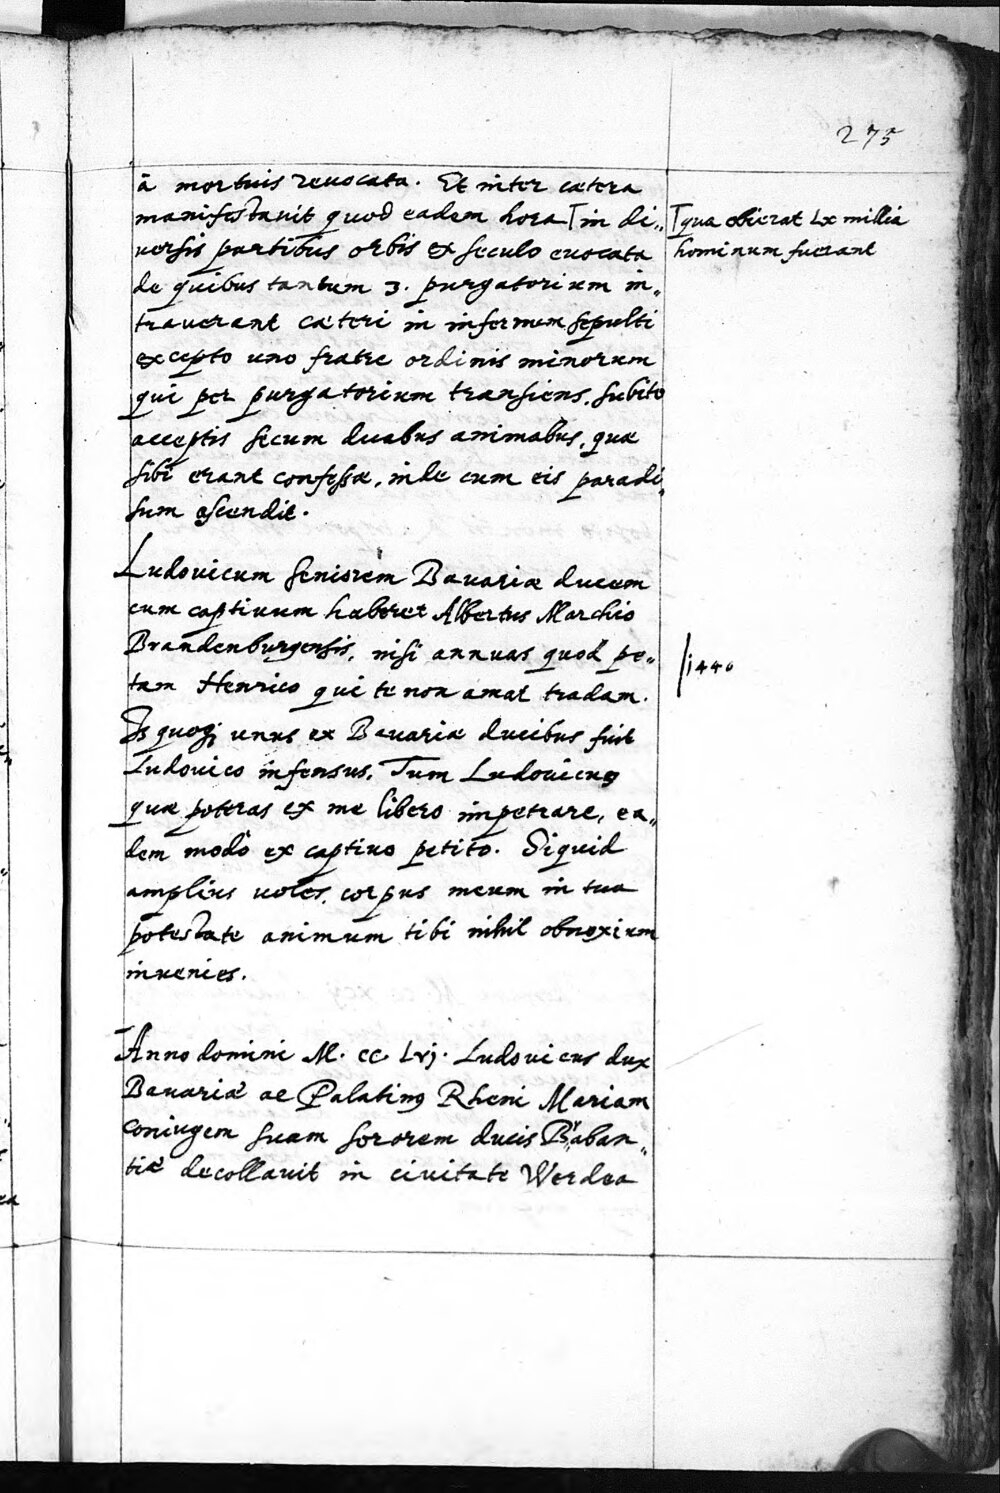 275
à mortuis reuocata. Et inter cætera
manifestauit quod eadem hora ⌈ in di„
uersis partibus orbis ex seculo euocata
de quibus tantum 3. purgatorium in„
trauerant cæteri in infernum sepulti
excepto uno fratre ordinis minorum
qui per purgatorium transiens, subito
acceptis secum duabus animabus, quæ
sibi erant confessæ, inde cum eis paradi„
sum ascendit.
⌈ qua obierat Lx millia
hominum fuerant
Ludouicum seniorem Bauariæ ducem
cum captiuum haberet Albertus Marchio
Brandenburgensis, nisi annuas quod pe„
tam Henrico qui te non amat tradam.
Is quoq; unus ex Bauariæ ducibus fuit
Ludouico infensus. Tum Ludouicus
quæ poteras ex me libero impetrare, ea„
dem modò ex captiuo petito. Siquid
amplius uoles, corpus meum in tua
potestate animum tibi nihil obnoxium
inuenies.
1440
Anno domini M. cc Lvj. Ludouicus dux
Bauariæ ac Palatinus Rheni Mariam
coniugem suam sororem ducis Braban„
tiæ decollauit in ciuitate Werdea